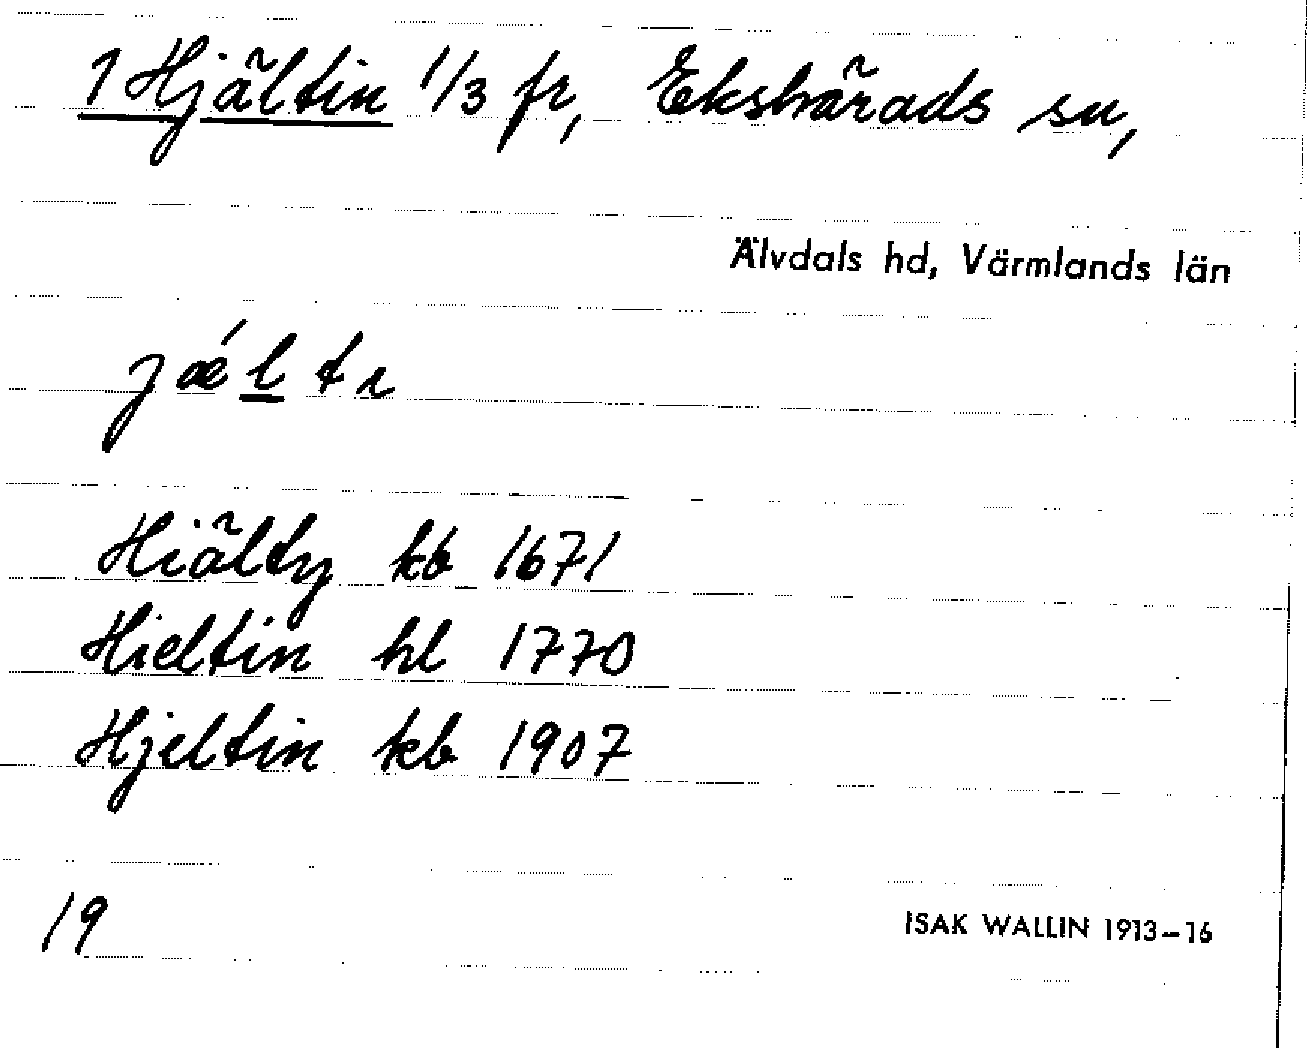 1 Hjältin 1/3 fr, Ekshärads sn,
Älvdals hd, Värmlands län
jǽltɩ
Hiälty kb 1671
Hieltin hl 1770
Hjeltin kb 1907
19
ISAK WALLIN 1913–16